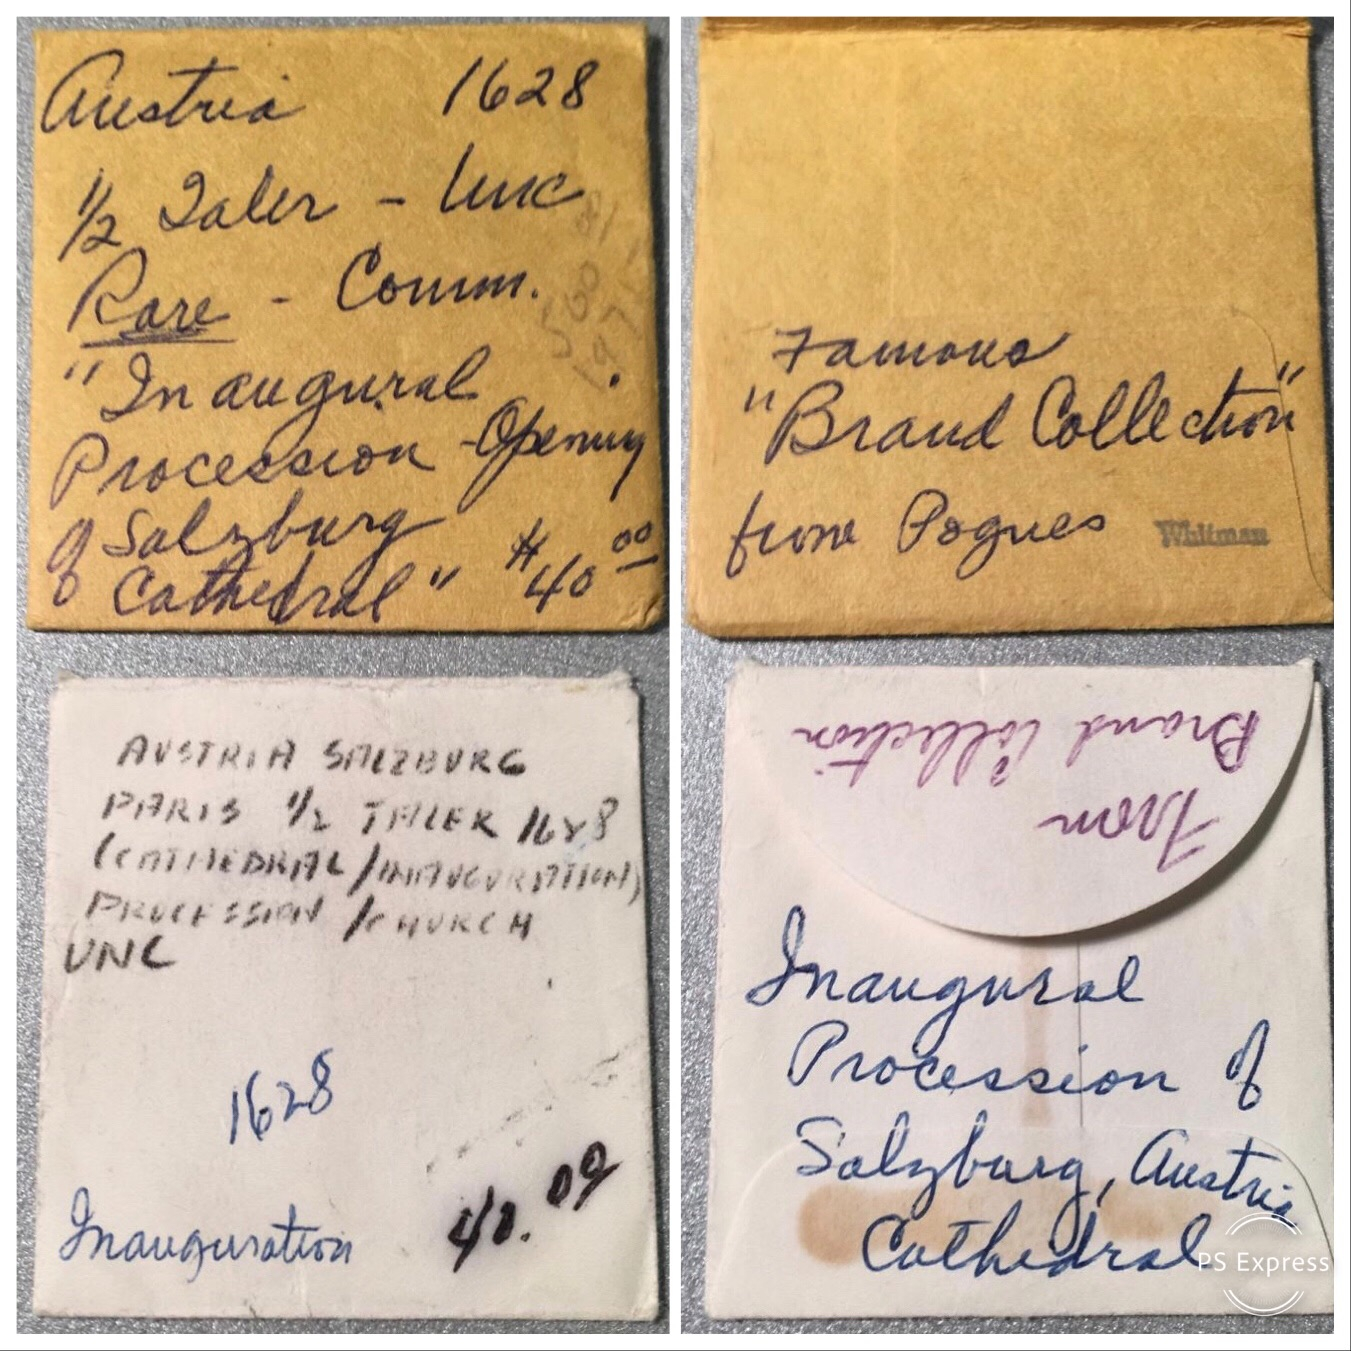 Austria 1628
1/2 Taler - Unc
Rare - Comm.
"Inaugural
Procession - Opening
of Salzburg
Cathedral" $40.00
Famous
"Brand Collection"
from Pogues
Whitman
AUSTRIA SALZBURG
PARIS 1/2 TALER 1628
(CATHEDRAL/INAUGURATION)
PROCESSION/CHURCH
UNC
1628
Inauguration 40.00
From
Brand Collection
Inaugural
Procession of
Salzburg, Austria
Cathedral
PS Express